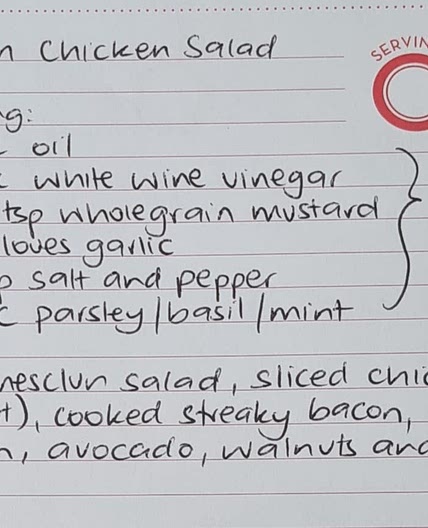 n Chicken Salad
SERVIN
g:
c oil
c white wine vinegar
tsp wholegrain mustard
loves garlic
p salt and pepper
c parsley/basil/mint
nesclun salad, sliced chic
t), cooked streaky bacon,
n, avocado, walnuts and